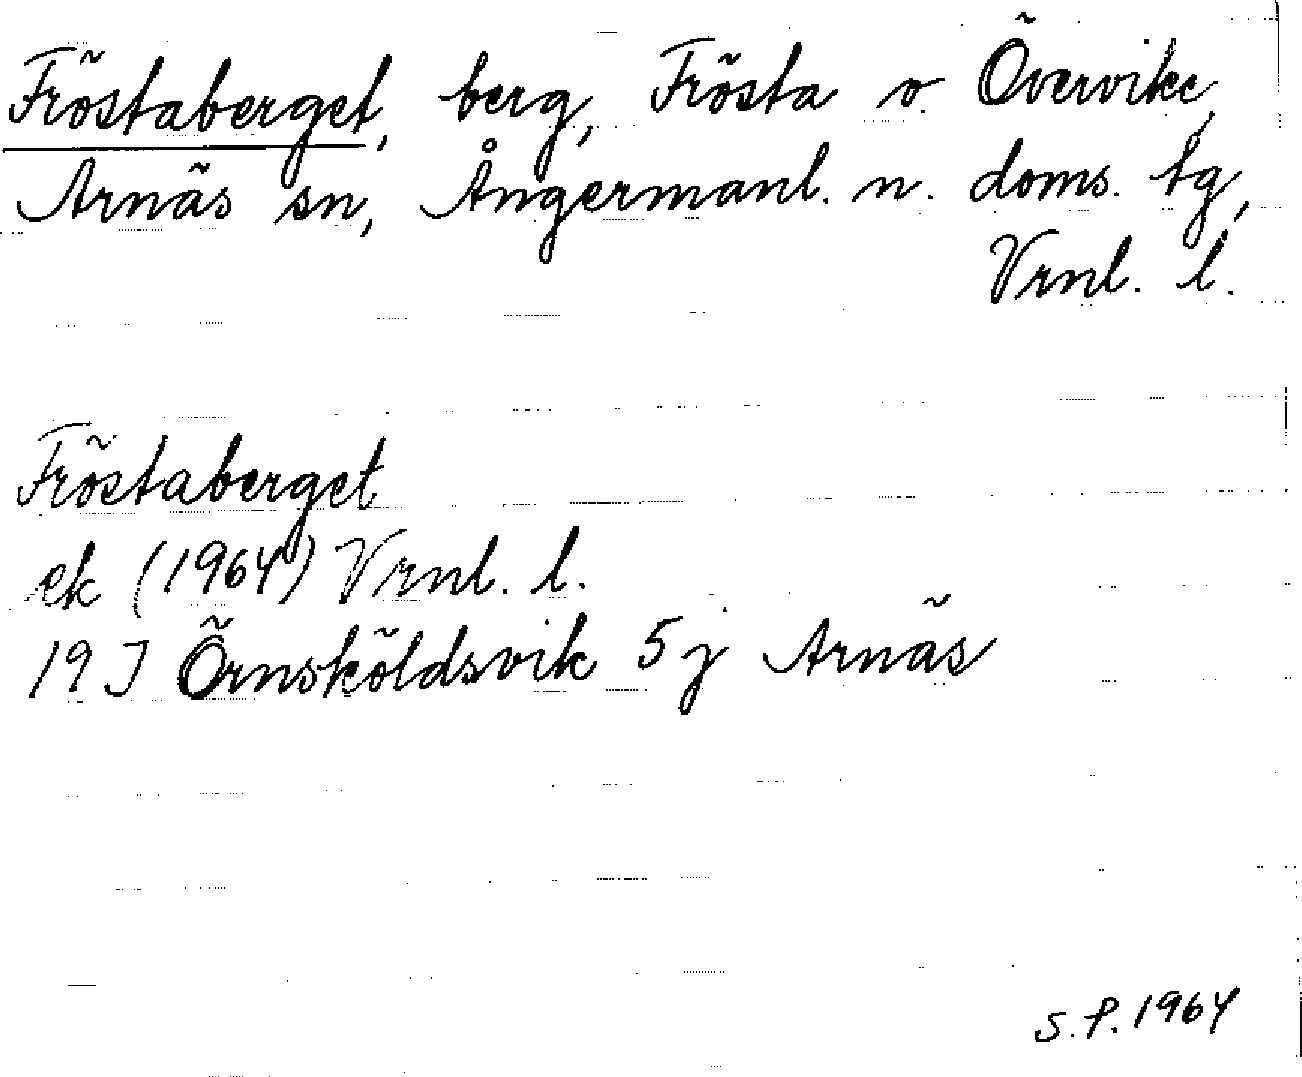 Fröstaberget, berg, Frösta o. Övervike,
Arnäs sn, Ångermanl. n. doms. tg,
Vrnl. l.
Fröstaberget
ek (1964) Vrnl. l.
19 J Örnsköldsvik 5 j Arnäs
S.P. 1964